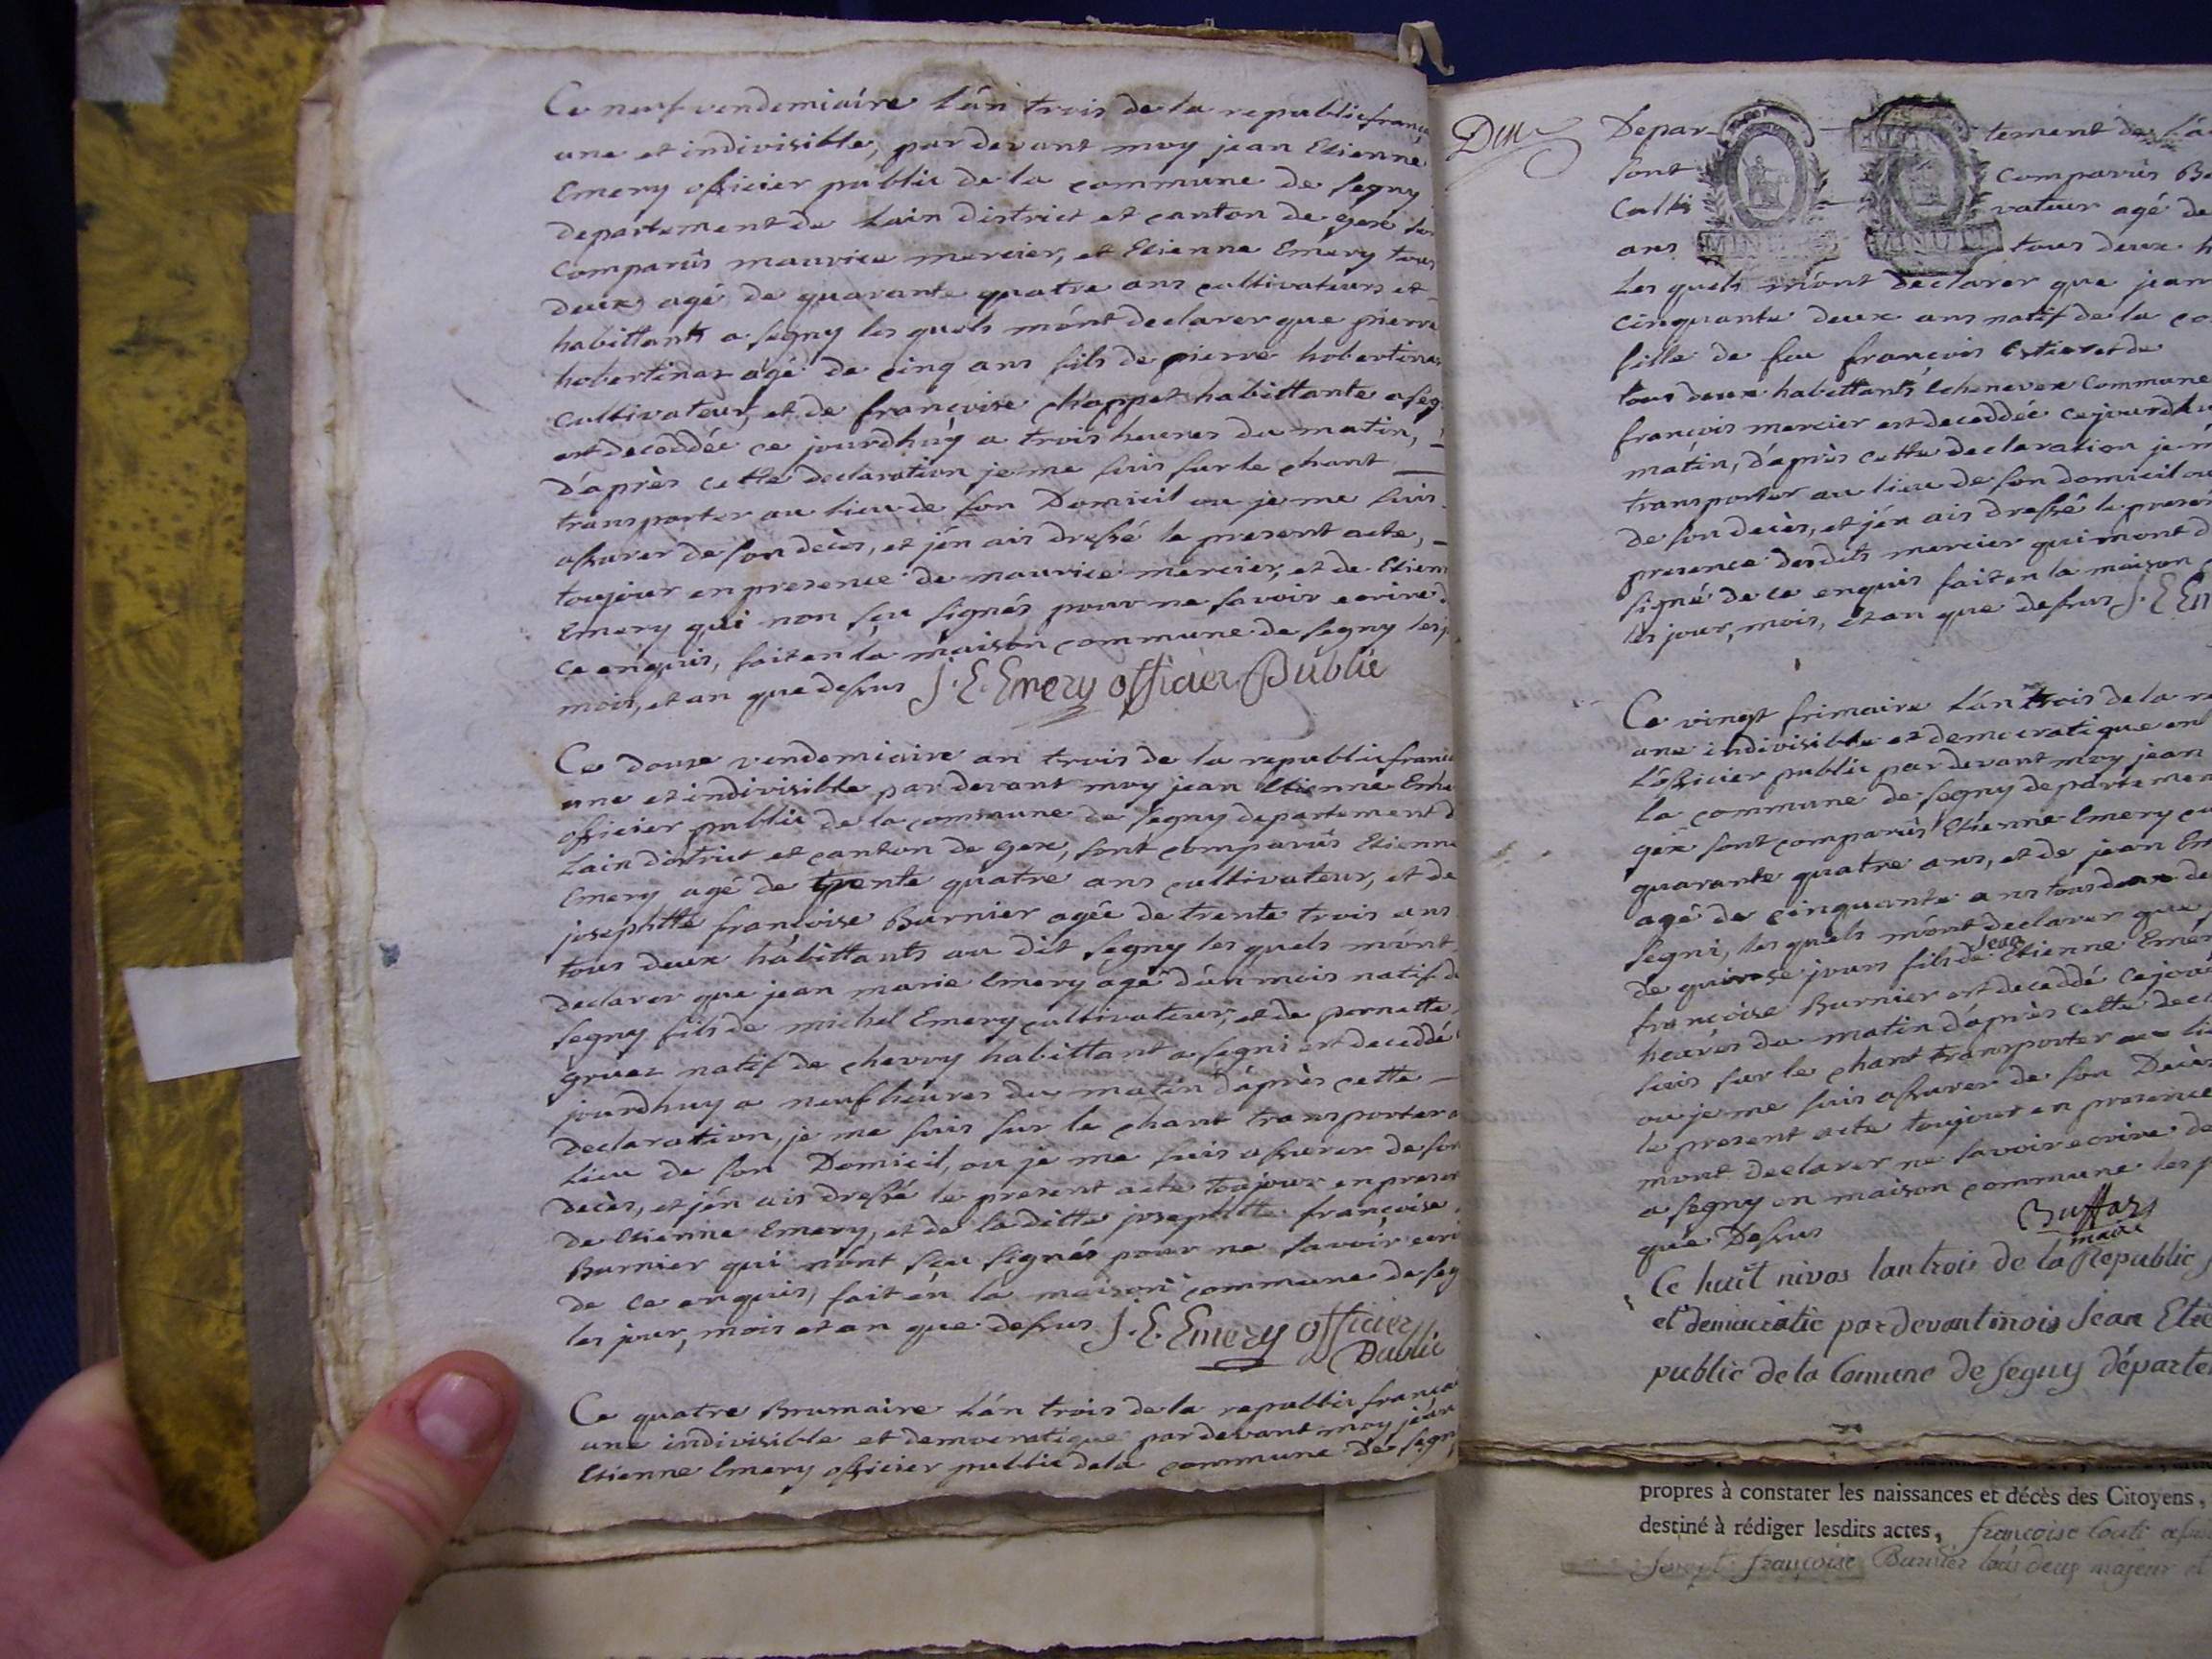 Ce neuf vendemiaire l'án trois de la republic franç
une et indivisible, par devant moy jean Etienne
Emery officier public de la commune de segny
departement de lain district et canton de gex son
Comparús maurice mercier, et Etienne Emery tous
deux agé de quarante quatre ans cultivateurs et
habittants a segny les quels mónt declarer que pierre
hobertinaz ágé de cinq ans fils de pierre hobertinaz
cultivateur, et de françoise chappet habittante a seg
est decoddée ce jourdhúy a trois heures du matin,
d'après cette declaration je me suis sur le chant
transporter au lieu de son Domicil ou je me suis
assurer de son decès, et j'en ais dressé le present acte,
toujour en presence de maurice mercier, et de Etienn
Emery qui non sçu signés pour ne savoir ecrire d
ce enquis, fait en la maison commune de segny les j
mois, et an que dessus J. E. Emery officier Public
Ce douze vendemiaire an trois de la republic franç
une et indivisible par devant moy jean Etienne Eme
officier public de la commune de segny departement d
Lain district et canton de gex, sont comparús Etienne
Emery agé de trente quatre ans cultivateur, et de
josephtte françoise Burnier agée de trente trois ans
tous deux hábittants au dit segny les quels mónt
declarer que jean marie Emery agé d'un mois natif d
segny fils de michel Emery cultivateur, et de pernette
gruaz natif de chevry habittant a segni est deceddé
jourdhuy a neuf heures du matin d'áprès cette
Declaration, je me suis sur le chant transporter a
Lieu de son Domicil, ou je me suis assurer de son
decès, et j'én ais dressé le present acte toujour en presen
de Etienne Emery, et de la ditte josephtte françoise
Burnier qui nónt sçu signés pour ne savoir ecri
de ce enquis, fait én la maison commune de seg
les jour, mois et an que dessus J. E. Emery officier
Public
Ce quatre Brumaire L'án trois de la republic françai
une indivisible et democratique par devant moy jean
Etienne Emery officier public de la commune de segn
Depar- tement de l'a
sont comparús
Culti vateur agé de
ans MINUTE MINUTE tous deux h
Les quels mónt declarer que jean
cinquante deux ans natif de la co
fille de feu françois et de
tous deux habittants Echenevex Commune
françois mercier est deceddée cejourdhu
matin, d'après cette declaration je m
transporter au lieu de son domicil ou
de son decès, et j'én ais dressé le presen
presence desdits mercier qui mont d
signé de ce enquis fait en la maison
les jour, mois, et an que dessus J. E Em
Ce vingt frimaire L'án trois de la re
une indivisible et democratique en
L'officier public par devant moy jean
La commune de segny departemen
gex sont comparús Etienne Emery cu
quarante quatre ans, et de jean Em
agé de cinquante ans tous deux de
segni, les quels mónt declarer que
de quinse jours fils de jean Etienne Emer
françoise Burnier est deceddé cejour
heures du matin d'après cette decl
suis sur le chant transporter au lie
ou je me suis assurer de son Decès
le present acte toujour en presence
mont declarer ne savoir ecrire de
a segny en maison commune les j
que Dessus
Buffaz
maire
Ce huit nivos lantrois de la Republic
et democratic par devant nois Jean Etie
public de la Comune de Segny départe
propres à constater les naissances et décès des Citoyens,
destiné à rédiger lesdits actes, françoise
françoise Burnier tous deux majeur et